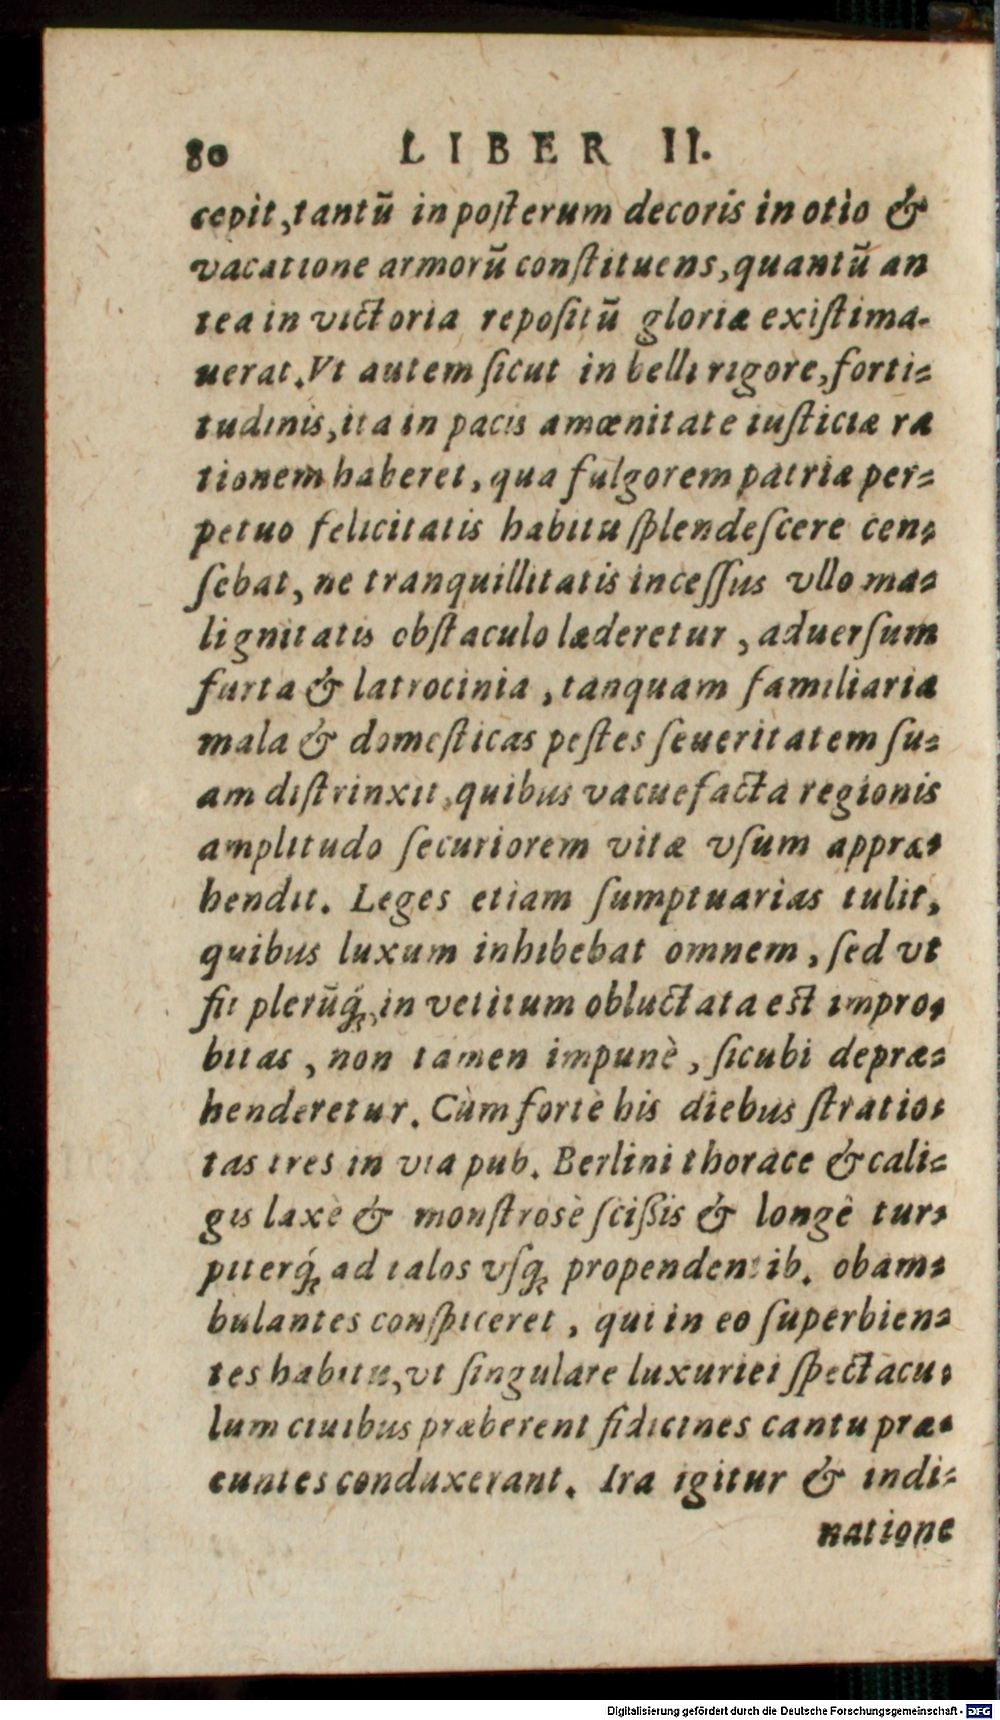 80 LIBER II.
cepit, tantũ in poſterum decoris in otio &
vacatione armorũ conſtituens, quantũ an
tea in victoria repoſitũ gloriæ exiſtima-
uerat. Vt autem ſicut in belli rigore, forti-
tudinis, ita in pacis amœnitate iuſticiæ ra
tionem haberet, qua fulgorem patriæ per-
petuo felicitatis habitu ſplendeſcere cen-
ſebat, ne tranquillitatis inceſſus vllo ma-
lignitatis obſtaculo læderetur, aduerſum
furta & latrocinia, tanquam familiaria
mala & domeſticas peſtes ſeueritatem ſu-
am diſtrinxit, quibus vacuefacta regionis
amplitudo ſecuriorem vitæ vſum appræ-
hendit. Leges etiam ſumptuarias tulit,
quibus luxum inhibebat omnem, ſed vt
fit plerũq́;, in vetitum obluctata est impro-
bitas, non tamen impunè, ſicubi depræ-
henderetur. Cùm fortè his diebus ſtratio-
tas tres in via pub. Berlini thorace & cali-
gis laxè & monſtrosè ſciſſis & longè tur-
piterq́; ad talos vſq; propendentib. obam-
bulantes conſpiceret, qui in eo ſuperbien-
tes habitu, vt ſingulare luxuriei ſpectacu-
lum ciuibus præberent fidicines cantu præ-
euntes conduxerant. Ira igitur & indi-
natione
Digitalisierung gefördert durch die Deutsche Forschungsgemeinschaft - DFG